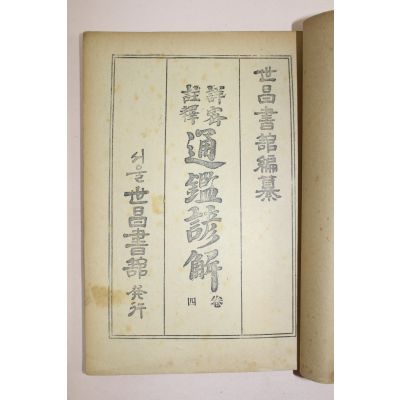 世昌書館編纂
詳密註釋
通鑑諺解
卷四
서울 世昌書館 発行